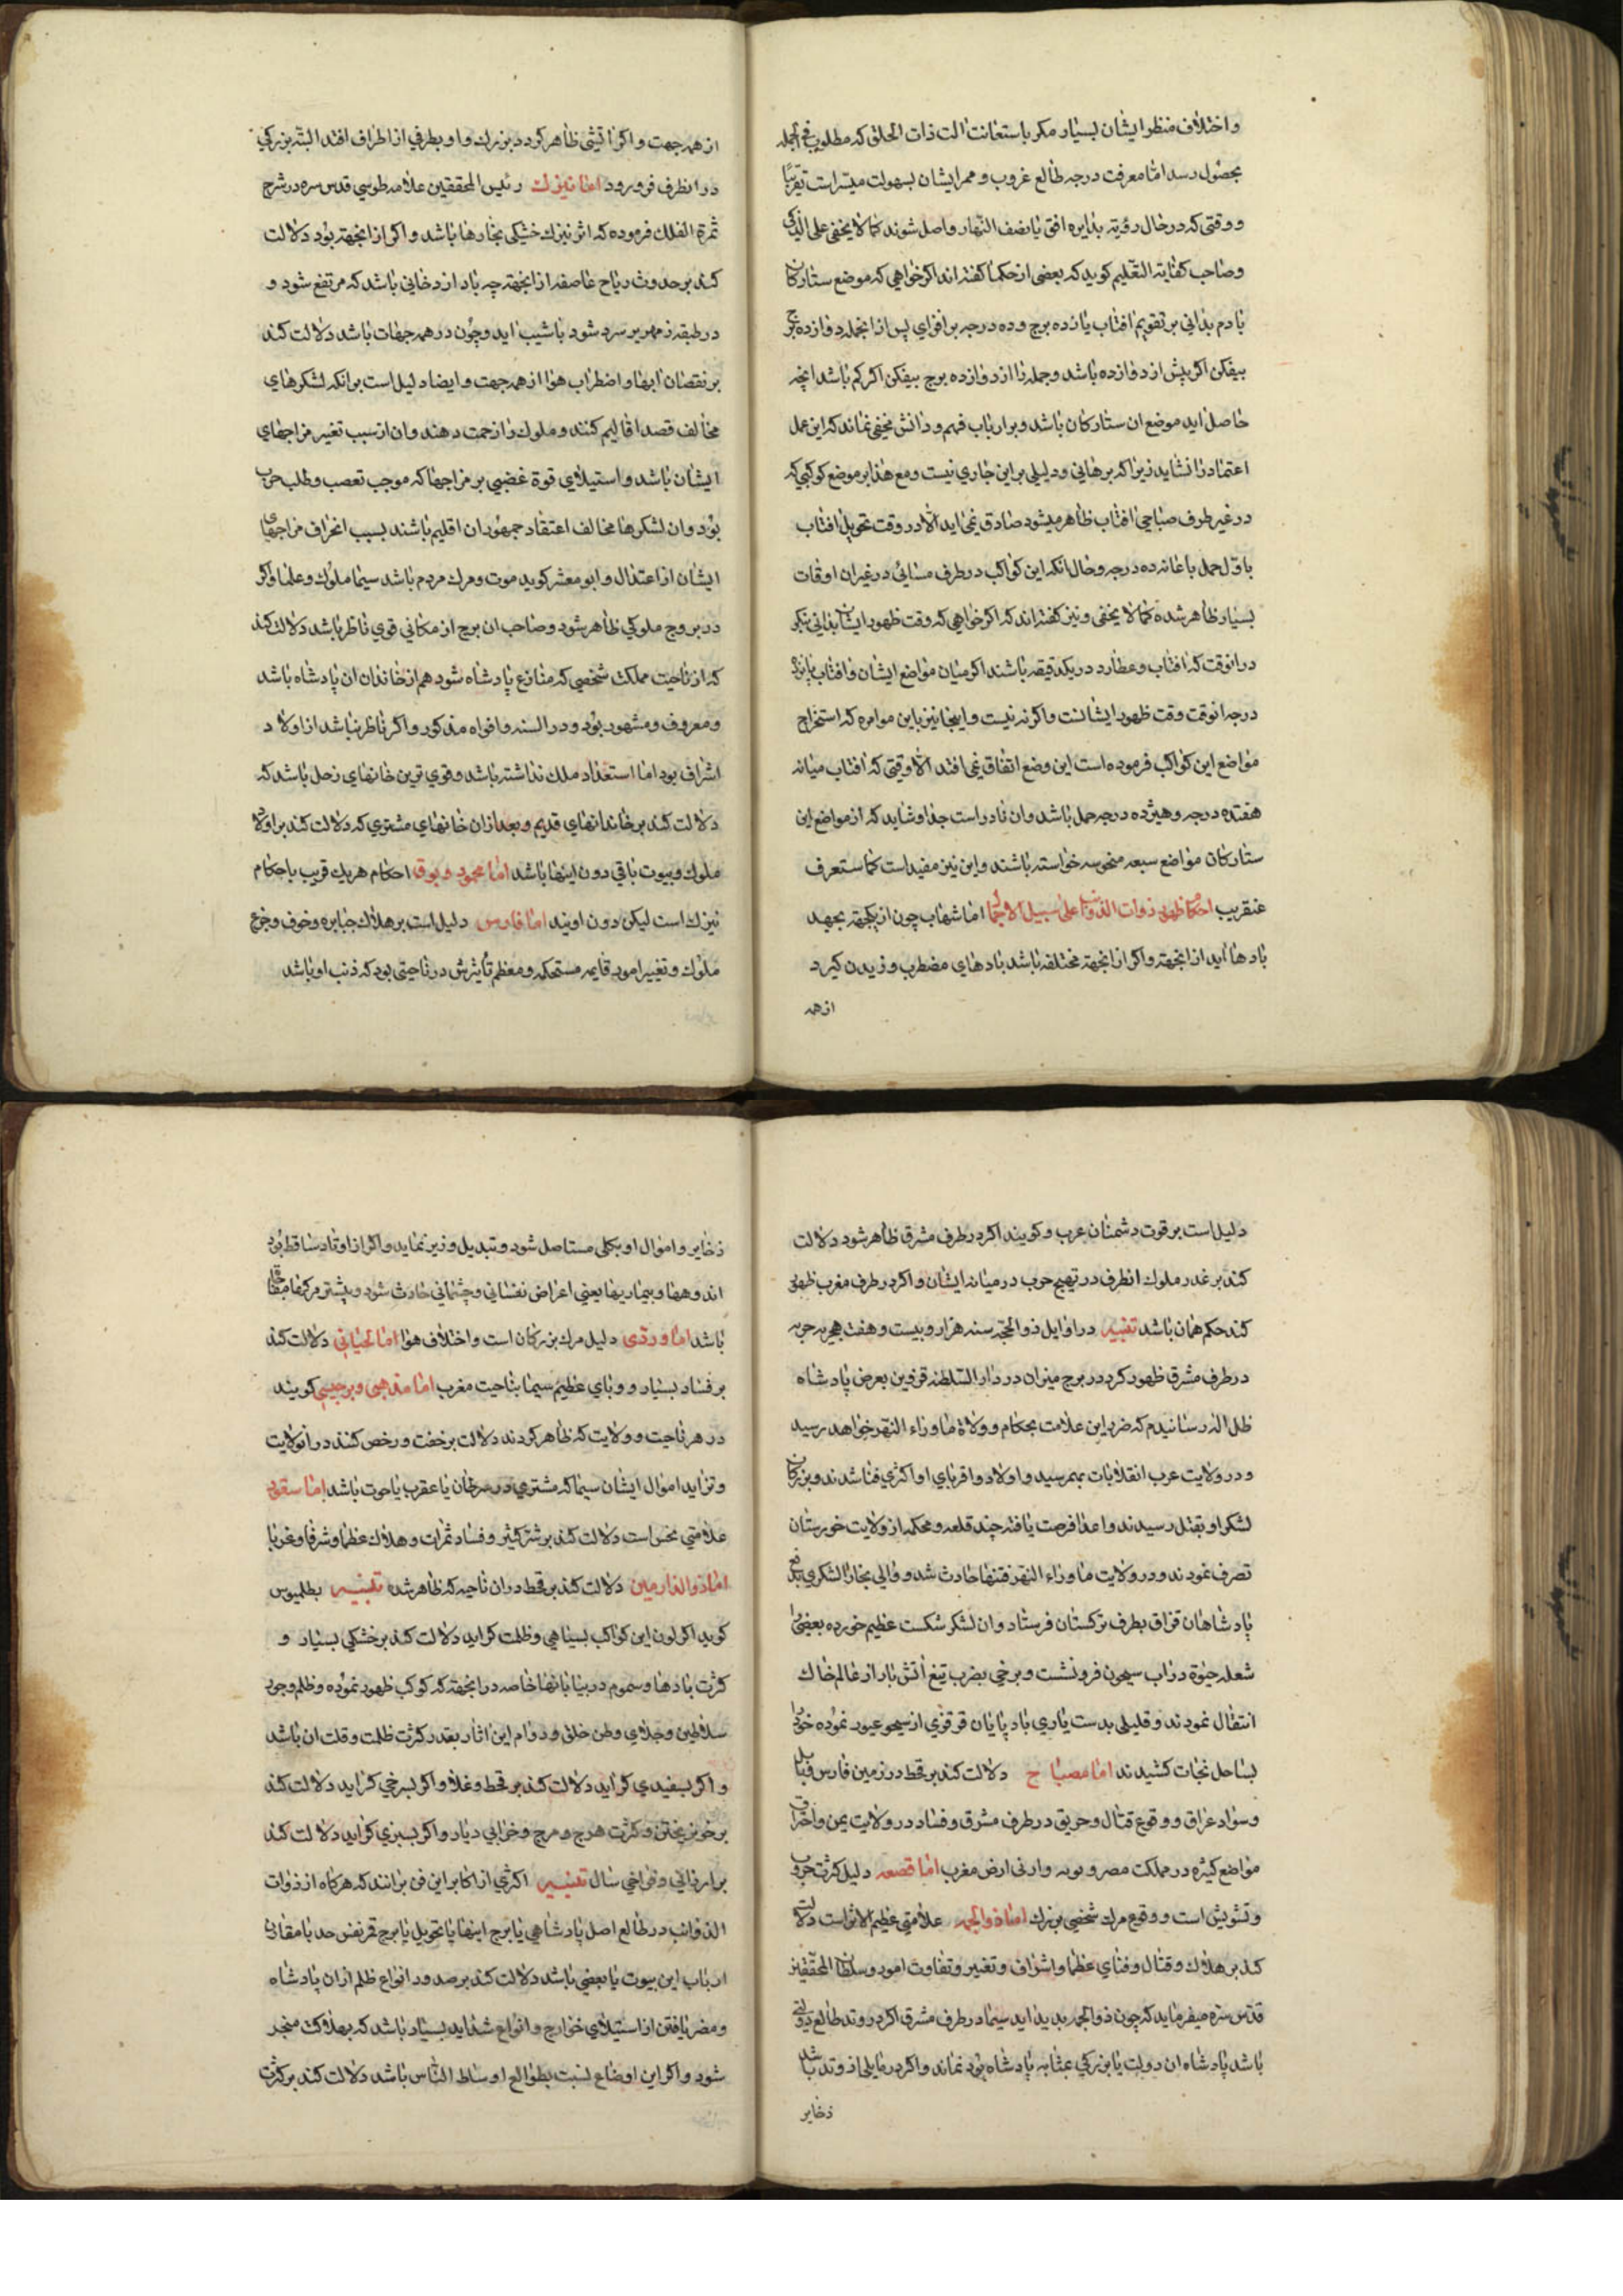 و اختلاف منظر ایشان بسیار مکر باستعانت الت ذات الحلق که مطلوب فی الجمله
بحصول رسد اما معرفت درجه طالع غروب و ممر ایشان بسهولت میسر است تقریبا
و وقتی که در حال رؤیة بدایره افق یا نصف النهار واصل شوند کما لا یخفی علی الذکی
و صاحب کفایة التعلیم کوید که بعضی از حکما کفته اند اکر خواهی که موضع ستارکان
با دم بدانی بر تقویم افتاب یازده برج و ده درجه بر افزای پس از انجمله دوازده برج
بیفکن اکر بیش از دوازده باشد و جمله را از دوازده برج بیفکن اکر کم باشد انچه
حاصل اید موضع ان ستارکان باشد و بر ارباب فهم و دانش مخفی نماند که این عمل
اعتماد را نشاید زیرا که برهانی و دلیلی بر این جاری نیست و مع هذا بر موضع کوکبی که
در غیر طرف صباحی افتاب ظاهر میشود صادق نمی اید الا در وقت تحویل افتاب
باول حمل با غانه ده درجه و حال انکه این کواکب در طرف مسائی در غیر ان اوقات
بسیار ظاهر شده کما لا یخفی و نیز کفته اند که اکر خواهی که وقت ظهور ایشان بدانی بنکر
در انوقت که افتاب و عطارد در یکدقیقه باشند اکر میان مواضع ایشان و افتاب پانزده
درجه انوقت وقت ظهور ایشانست و اکر نه نیست و اینجا نیز باین موامره که استخراج
مواضع این کواکب فرموده است این وضع اتفاق نمی افتد الا وقتی که افتاب میانه
هفتده درجه و هیژده درجه حمل باشد و ان نادر است جدا و شاید که از مواضع این
ستارکان مواضع سبعه منحوسه خواسته باشند و این نیز مفید است کما ستعرف
عنقریب احکام ظهور ذوات الذوائب علی سبیل الاجمال اما شهاب چون از یکجهة بجهد
بادها اید از انجهة و اکر از انجهة مختلفه باشد بادهای مضطرب وزیدن کیرد
از همه
از همه جهت و اکر اتشی ظاهر کردد بزرک و او بطرفی از اطراف افتد البته بزرکی
در انطرف فرو رود اما نیزک رئیس المحققین علامه طوسی قدس سره در شرح
ثمرة الفلک فرموده که اثر نیزک خشکی بخارها باشد و اکر از انجهة بود دلالت
کند بر حدوث ریاح عاصفه از انجهة چه باد از دخانی باشد که مرتفع شود و
در طبقه زمهریر سرد شود باشیب اید و چون در همه جهات باشد دلالت کند
بر نقصان ابها و اضطراب هوا از همه جهت و ایضا دلیل است بر انکه لشکرهای
مخالف قصد اقالیم کنند و ملوک را زحمت دهند و ان از سبب تغیر مزاجهای
ایشان باشد و استیلای قوة غضبی بر مزاجها که موجب تعصب و طلب حرب
بود و ان لشکرها مخالف اعتقاد جمهور ان اقلیم باشند بسبب انحراف مزاجهای
ایشان از اعتدال و ابو معشر کوید موت و مرک مردم باشد سیما ملوک و علما و اکر
در بروج ملوکی ظاهر شود و صاحب ان برج از مکانی قوی ناظر باشد دلالت کند
که از ناحیت مملکت شخصی که منازع پادشاه شود هم از خاندان ان پادشاه باشد
و معروف و مشهور بود و در السنه و افواه مذکور و اکر ناظر نباشد از اولاد
اشراف بود اما استعداد ملک نداشته باشد و قوی ترین خانهای زحل باشد که
دلالت کند بر خاندانهای قدیم و بعد ازان خانهای مشتری که دلالت کند بر اولاد
ملوک و بیوت باقی دون اینها باشد اما عمود و بوق احکام هر یک قریب باحکام
نیزک است لیکن دون اویند اما فارس دلیل است بر هلاک جبابره و خوف و جوع
ملوک و تغییر امور قایمه مستحکمه و معظم تاثیرش در ناحیتی بود که ذنب او باشد
دلیل است بر قوت دشمنان عرب و کویند اکر در طرف مشرق ظاهر شود دلالت
کند بر غدر ملوک انطرف در تهیج حرب در میانه ایشان و اکر در طرف مغرب ظهور
کند حکم همان باشد تنبیه در اوایل ذوالحجه سنه هزار و بیست و هفت هجریه حربه
در طرف مشرق ظهور کرد در برج میزان در دار السلطنه قزوین بعرض پادشاه
ظل اله رسانیدم که ضرر این علامت بحکام و ولاة ماوراء النهر خواهد رسید
و در ولایت عرب انقلابات بهم رسید و اولاد و اقربای او اکثری فنا شدند و بزرکان
لشکر او بقتل رسیدند و اعدا فرصت یافته چند قلعه و محکمه از ولایت خورستان
تصرف نمودند و در ولایت ماوراء النهر فتنها حادث شد و والی بخارا لشکری بدفع
پادشاهان قزاق بطرف ترکستان فرستاد و ان لشکر شکست عظیم خورده بعضی را
شعله حیوة در اب سیحون فرو نشست و برخی بضرب تیغ اتش بار از عالم خاک
انتقال نمودند و قلیلی بدستیاری باد پایان قرقزی از سیحون عبور نموده خود را
بساحل نجات کشیدند اما مصباح دلالت کند بر قحط در زمین فارس و بابل
و سواد عراق و وقوع قتال و حریق در طرف مشرق و فساد در ولایت یمن و احراق
مواضع کثیره در مملکت مصر و نوبه و ادنی ارض مغرب اما قصعه دلیل کثرت حروب
و تشویش است و وقوع مرک شخصی بزرک اما ذوالجمه علامتی عظیم الاثر است دلالت
کند بر هلاک و قتال و فنای عظما و اشراف و تغییر و تفاوت امور و سلطان المحققین
قدس سره میفرماید که چون ذوالجمه پدید اید سیما در طرف مشرق اکر در وتد طالع دولتی
باشد پادشاه ان دولت یا بزرکی بمثابه پادشاه بود نماند و اکر در مایلی از وتد باشد
ذخایر
ذخایر و اموال او بکلی مستاصل شود و تبدیل وزیر نماید و اکر از اوتاد ساقط بود
اندوهها و بیماریها یعنی اعراض نفسانی و جسمانی حادث شود و بیشتر مرکها مفاجا
باشد اما وردی دلیل مرک بزرکان است و اختلاف هوا اما لحیانی دلالت کند
بر فساد بسیار و وبای عظیم سیما بناحیت مغرب اما مذهبی و برجیسی کویند
در هر ناحیت و ولایت که ظاهر کردند دلالت بر خفت و رخص کنند در انولایت
و تزاید اموال ایشان سیما که مشتری در سرطان یا عقرب یا حوت باشد اما سقوبی
علامتی نحس است دلالت کند بر شر کثیر و فساد ثمرات و هلاک عظما و شرفا و غربا
اما ذوالدارمین دلالت کند بر قحط در ان ناحیه که ظاهر شده تنبیه بطلمیوس
کوید اکر لون این کواکب بسیاهی و ظلمت کراید دلالت کند بر خشکی بسیار و
کثرت بادها و سموم در بیابانها خاصه در انجهة که کوکب ظهور نموده و ظلم و جور
سلاطین و جلای وطن خلق و دوام این اثار بقدر کثرت ظلمت و قلت ان باشد
و اکر بسفیدی کراید دلالت کند بر قحط و غلا و اکر بسرخی کراید دلالت کند
بر خونریختن و کثرت هرج و مرج و خرابی دیار و اکر بسبزی کراید دلالت کند
بر ارزانی و فراخی سال تنبیه اکثری از اکابر این فن برانند که هرکاه از ذوات
الذوائب در طالع اصل پادشاهی یا برج انتها یا تحویل یا برج قمر نفس حد یا مقارن
ارباب این بیوت یا بعضی باشد دلالت کند بر صدور انواع ظلم از ان پادشاه
و مضر یافتن از استیلای خوارج و انواع شداید بسیار باشد که بهلاکت منجر
شود و اکر این اوضاع نسبت بطوالع اوساط الناس باشد دلالت کند بر کثرت